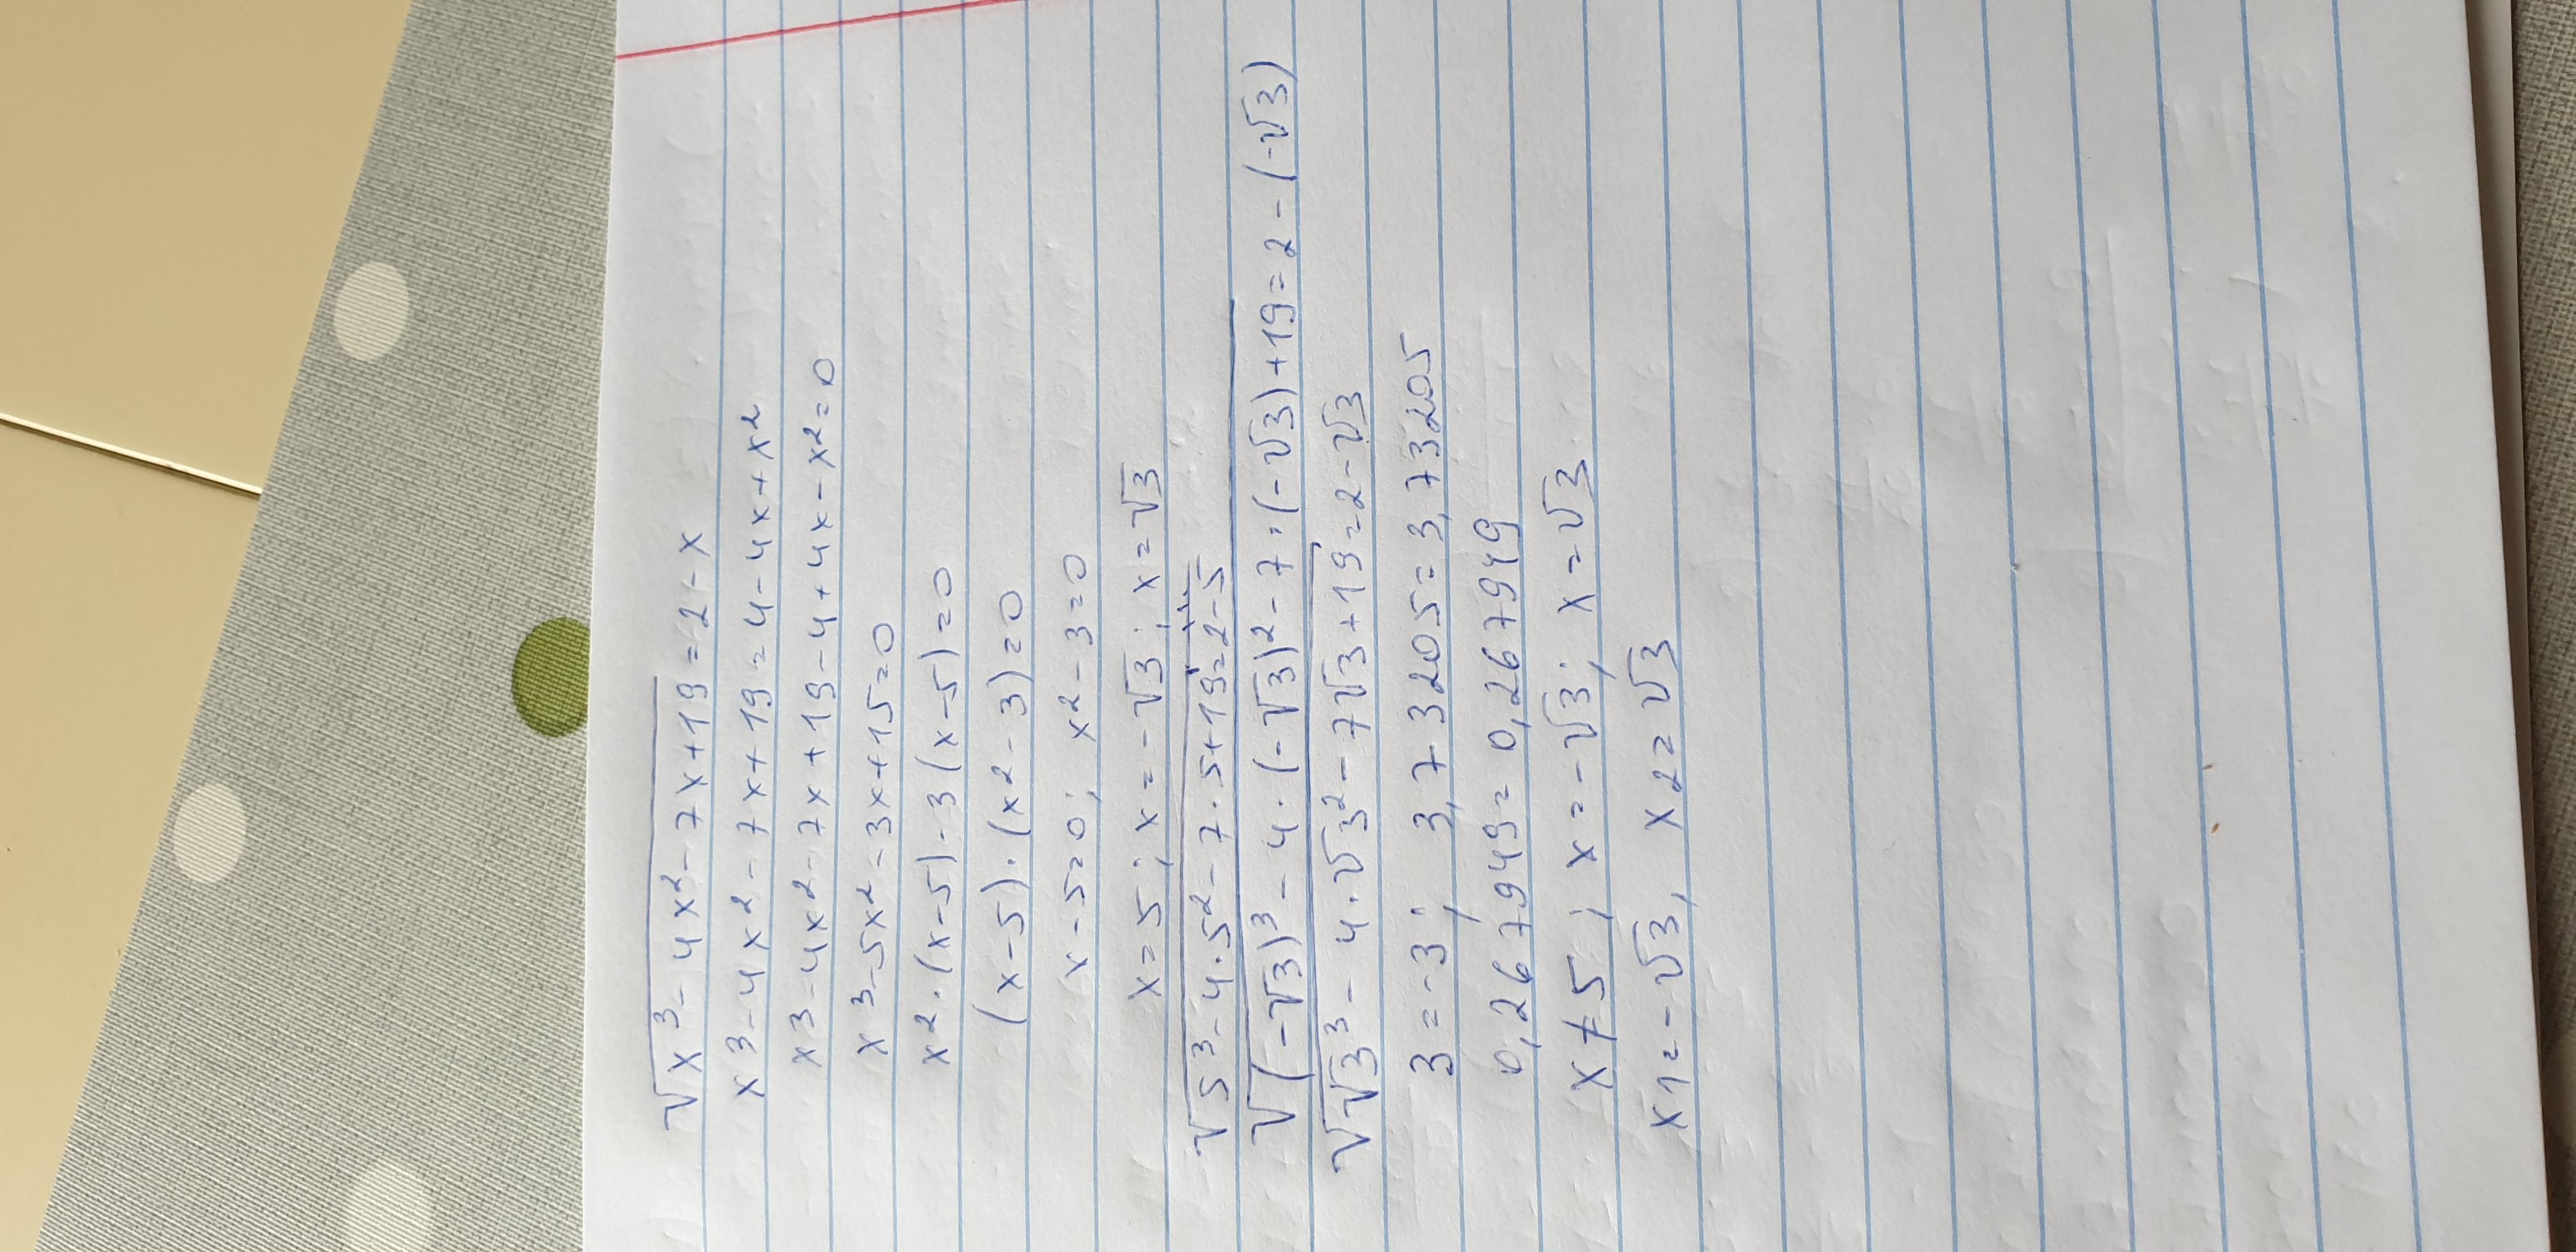 √x³-4x²-7x+19=2-x
x3-4x2-7x+19=4-4x+x2
x3-4x2-7x+19-4+4x-x2=0
x3-5x2-3x+15=0
x2·(x-5)-3(x-5)=0
(x-5)·(x2-3)=0
x-5=0; x2-3=0
x=5; x=-√3; x=√3
√5³-4·5²-7·5+19=2-5
√(-√3)³-4·(-√3)²-7·(-√3)+19=2-(-√3)
√√3³-4·√3²-7√3+19=2-√3
3=-3; 3,73205=3,73205
0,267949=0,267949
x≠5; x=-√3; x=√3
x1=-√3, x2=√3